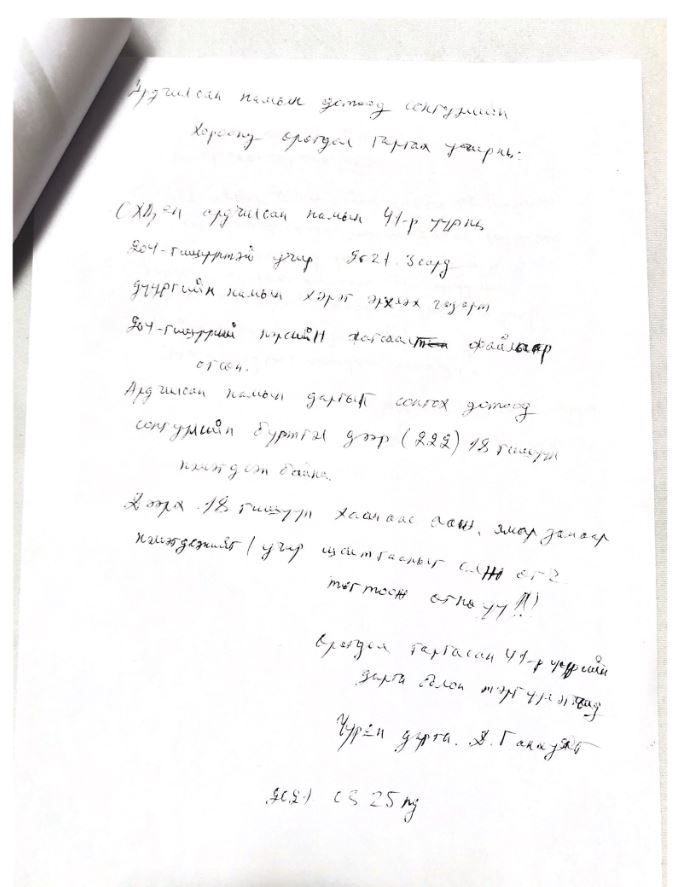 Ардчилсан намын дотоод сонгуулийн
Хороонд өргөдөл гаргах учирнь:
СХД-ен ардчилсан намын 41-р үүрнь
204-гишүүнтэй учир 2021.3сард
дүүргийн намын хэрэг эрхлэх газарт
204-гишүүний нэрсийн жагсаалт файлаар
өгсөн.
Ардчилсан намын даргыг сонгох дотоод
сонгуулийн бүртгэл дээр (222) 18 гишүүн
нэмэгдсэн байна.
Дээрх 18 гишүүн хаанаас олж, ямар замаар
нэмэгдсэнийг / учир шалтгааныг олж
тогтоож өгнө үү!!!
Өргөдөл гаргасан 41-р үүрийн
дарга болон тэргүүлэгчид
Үүрэн дарга. Д.
2021 03 25нд